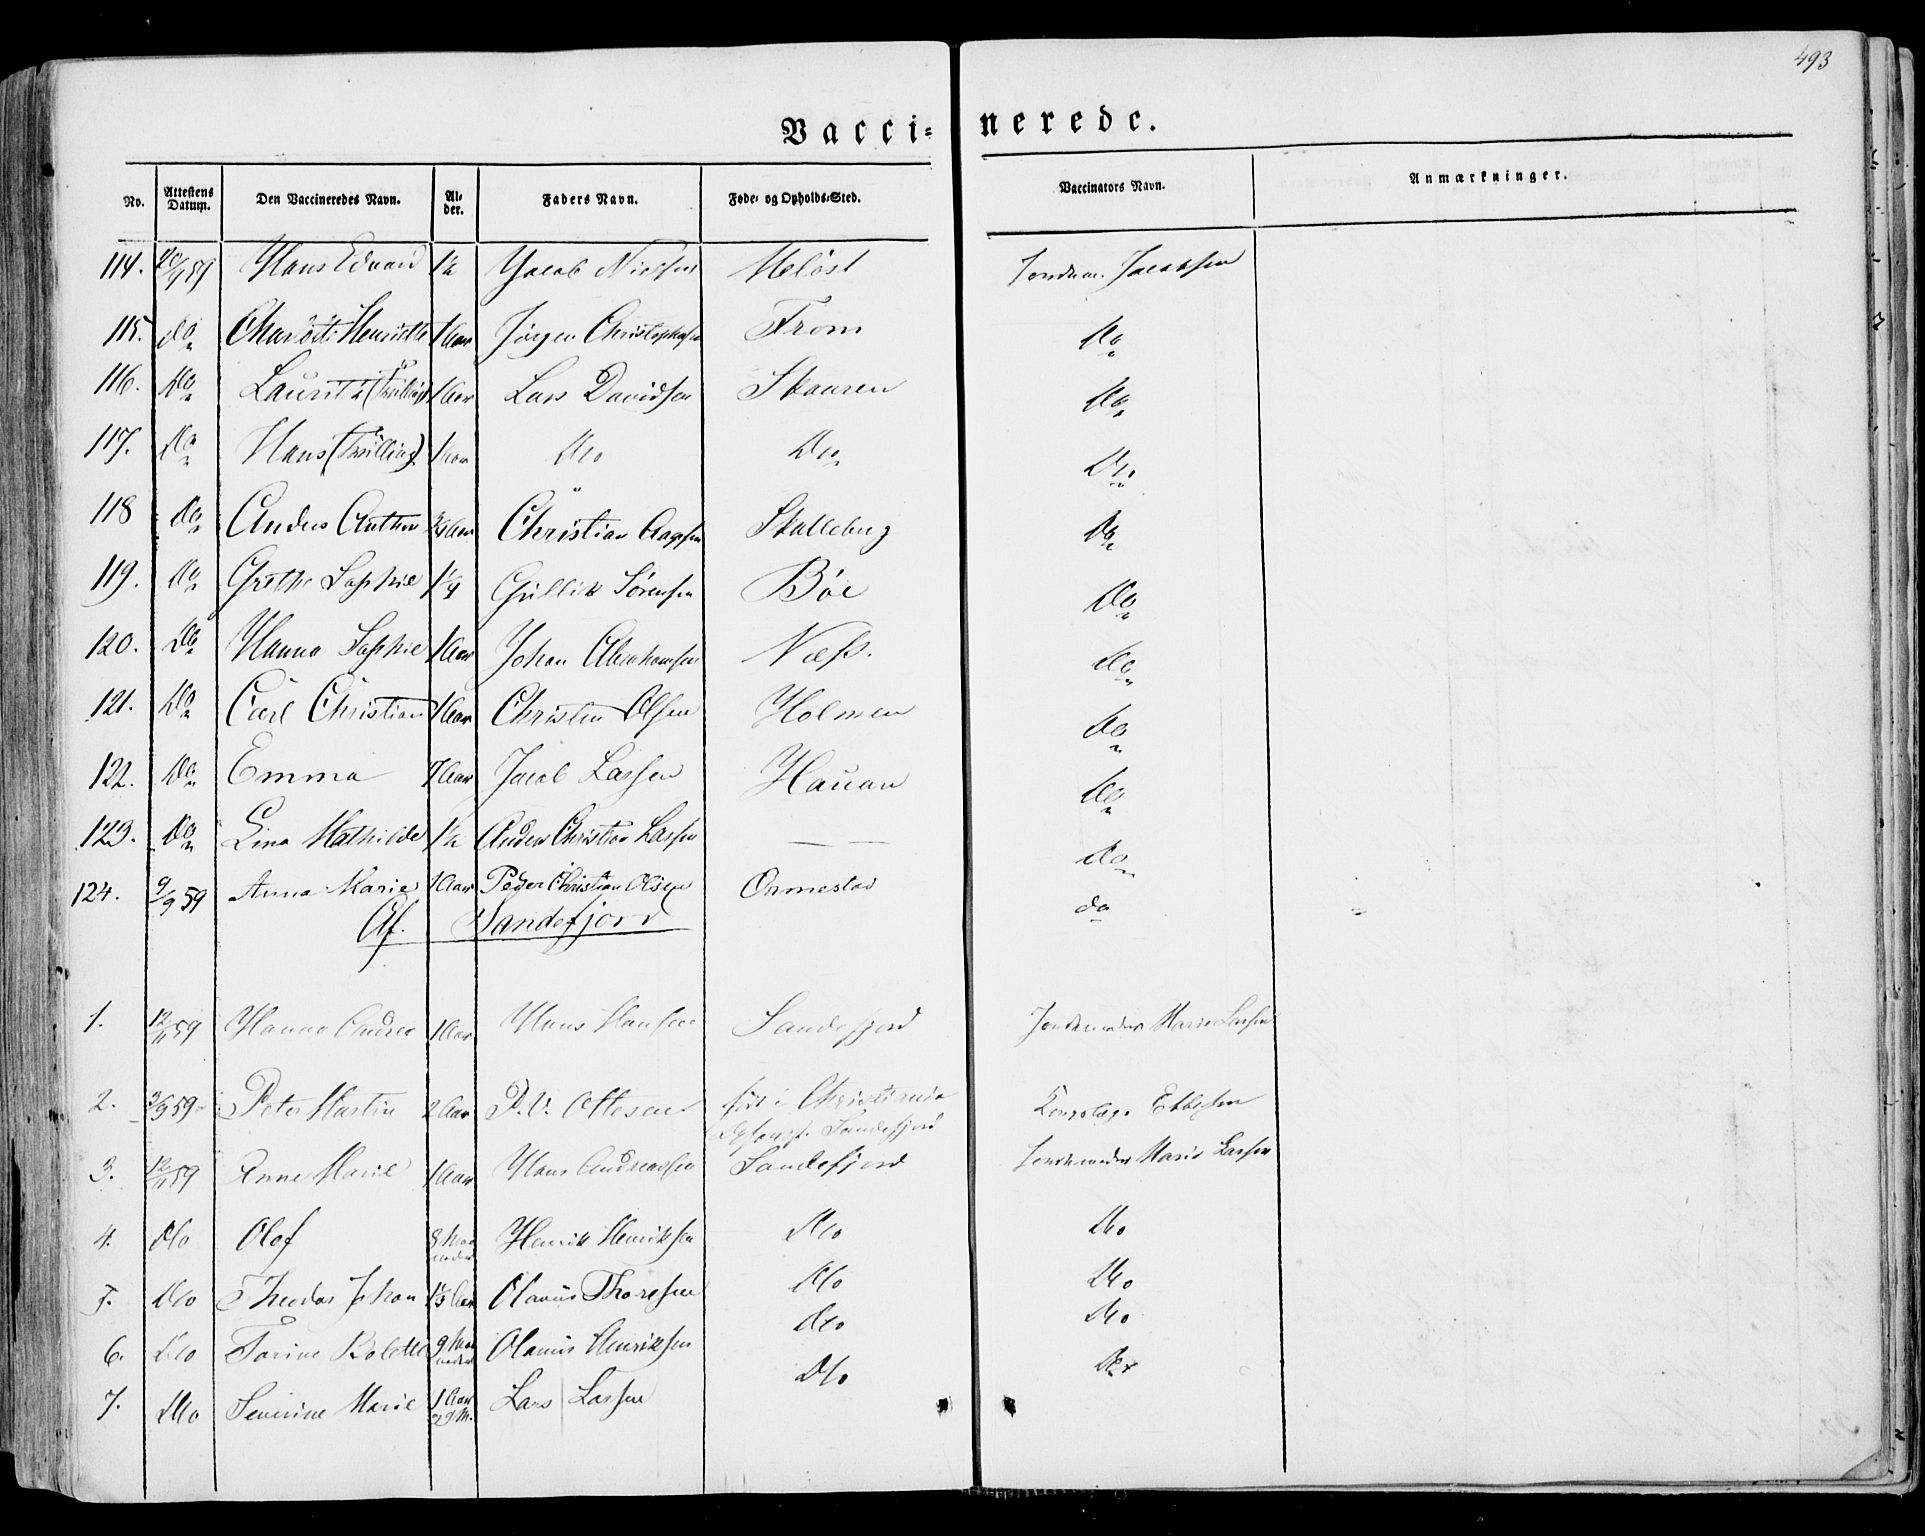 493
Vacci= nerede.
No. Attestens Datum. Den Vaccineredes Navn. Al= der. Faders Navn. Føde= og Opholds=Sted. Vaccinators Navn. Anmærkninger.
114. 20/9 59 Hans Edvard 1½ Jacob Nielsen Meløst Jordem. Jacobsen
115. Do Charlot. Henriette 1 Aar Jørgen Christophersen From Do
116. Do Lauritz (Tvilling) 1 Aar Lars Davidsen Skauren Do
117. Do Hans (Tvilling) 1 Aar Do Do Do
118 Do Anders Anthon 3/4 Aar Christian Aagesen Skalleberg Do
119. Do Grethe Sophie 1¼ Gullik Sørensen Bøe Do
120. Do Hanna Sophie 1 Aar Johan Abrahamsen Næss. Do
121. Do Carl Christian 1 Aar Christen Olsen Holmen Do
122. Do Emma 7 Aar Jacob Larsen Hauan Do
123. Do Lina Mathilde 1½ Anders Christian Larsen — — Do
124. 9/9 59 Anna Marie 1 Aar Peder Christian Olsen Ormestad do
Af. Sandefjord
1. 12/11 59 Hanna Andrea 1 Aar Hans Hansen Sandefjord Jordemoder Marie Larsen
2. 3/9 59 Peter Martin 2 Aar P. V. Ottesen født i Christiania
Sandefjord Ebbesen
3. 12/11 59 Anne Marie 1 Aar Hans Andreassen Sandefjord Jordemoder Marie Larsen
4. Do Olof 8 Maaneder Henrik Henriksen Do Do
5. Do Theodor Johan 1½ Aar Olaus Thoresen Do Do
6. Do Torine Bolette 9 Maaneder Olaus Henriksen Do Do
7. Do Severine Marie 1 Aar og 9 M. Lars Larsen Do Do